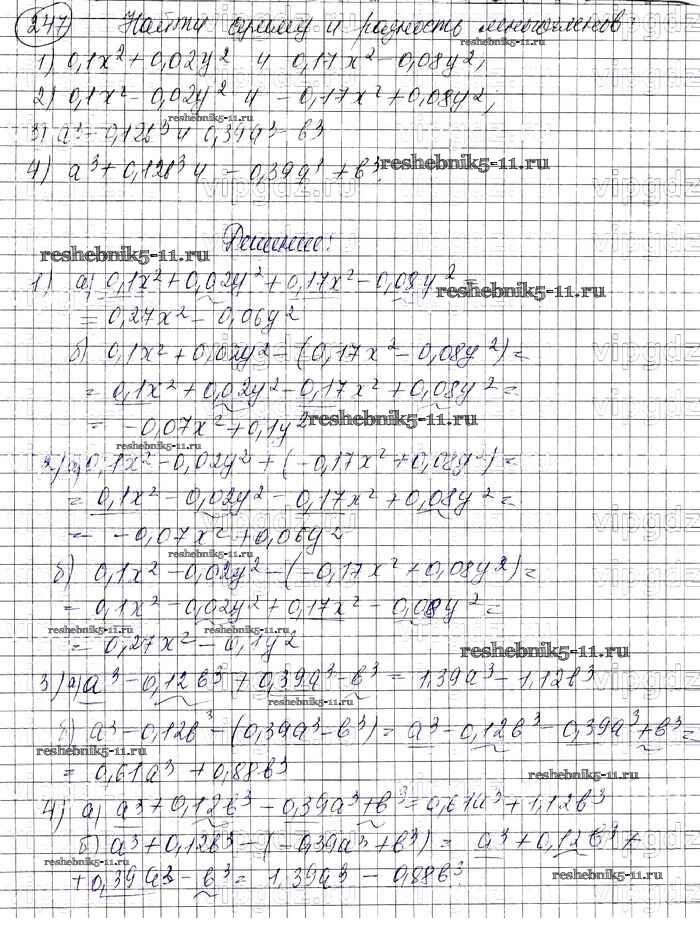 247 Найти сумму и разность многочленов:
reshebnik5-11.ru
1) 0,1x² + 0,02y² и 0,17x² - 0,08y²;
2) 0,1x² - 0,02y² и -0,17x² + 0,08y²;
reshebnik5-11.ru
3) a³ - 0,12b³ и 0,39a³ - b³
4) a³ + 0,12b³ и -0,39a³ + b³. reshebnik5-11.ru
vipgdz.ru
Решение:
reshebnik5-11.ru
1) а) 0,1x² + 0,02y² + 0,17x² - 0,08y² =
reshebnik5-11.ru
= 0,27x² - 0,06y²
б) 0,1x² + 0,02y² - (0,17x² - 0,08y²) =
= 0,1x² + 0,02y² - 0,17x² + 0,08y² =
= -0,07x² + 0,1y² reshebnik5-11.ru
reshebnik5-11.ru
2) а) 0,1x² - 0,02y² + (-0,17x² + 0,08y²) =
= 0,1x² - 0,02y² - 0,17x² + 0,08y² =
= -0,07x² + 0,06y²
reshebnik5-11.ru
б) 0,1x² - 0,02y² - (-0,17x² + 0,08y²) =
= 0,1x² - 0,02y² + 0,17x² - 0,08y² =
reshebnik5-11.ru reshebnik5-11.ru
= 0,27x² - 0,1y²
reshebnik5-11.ru
3) а) a³ - 0,12b³ + 0,39a³ - b³ = 1,39a³ - 1,12b³
reshebnik5-11.ru
б) a³ - 0,12b³ - (0,39a³ - b³) = a³ - 0,12b³ - 0,39a³ + b³ =
reshebnik5-11.ru
= 0,61a³ + 0,88b³
reshebnik5-11.ru
4) а) a³ + 0,12b³ - 0,39a³ + b³ = 0,61a³ + 1,12b³
б) a³ + 0,12b³ - (-0,39a³ + b³) = a³ + 0,12b³ +
reshebnik5-11.ru
+ 0,39a³ - b³ = 1,39a³ - 0,88b³
reshebnik5-11.ru